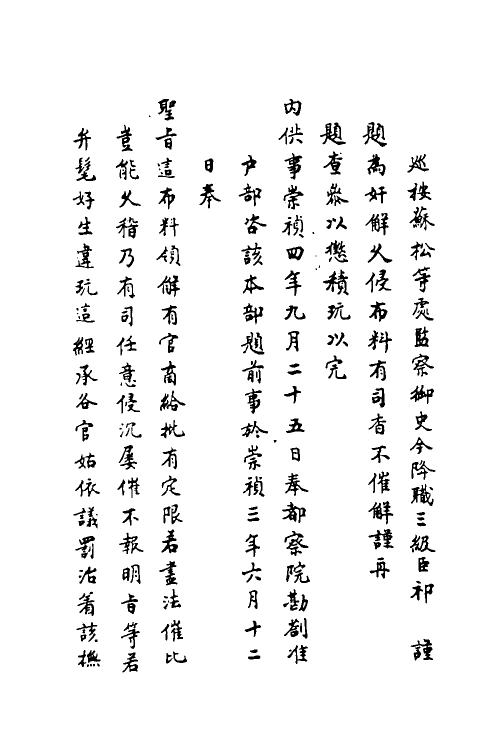 巡按蘇松等處監察御史今降職三級臣祁　謹
題為奸解久侵布料有司杳不催解謹再
題查參以懲積玩以完
內供事崇禎四年九月二十五日奉都察院勘劄准
戶部咨該本部題前事於崇禎三年六月十二
日奉
聖旨這布料領解有官商給批有定限若盡法催比
豈能久稽乃有司任意侵沉屢催不報明旨等若
弁髦好生違玩這經承各官姑依議罰治着該撫